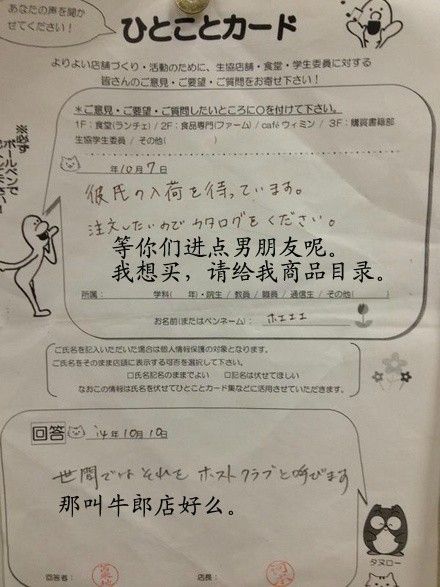 あなたの声を聞か
せてください!
ひとことカード
よりよい店舗づくり・活動のために、生協店舗・食堂・学生委員に対する
皆さんのご意見・ご要望・ご質問をお寄せ下さい!
※必ず
ボールペンで
*ご意見・ご要望・ご質問したいところに○を付けて下さい。
1F:食堂(ランチェ) / 2F:食品専門(ファーム) / caféウィミン / 3F:購買書籍部
生協学生委員 / その他( )
年10月7日
彼氏の入荷を待っています。
注文したいのでカタログをください。
等你们进点男朋友呢。
我想买,请给我商品目录。
所属: 学科( 年)・院生 / 教員 / 職員 / 通信生 / その他( )
お名前(またはペンネーム): ホエエエ
ご氏名を記入いただいた場合は個人情報保護の対象となります。
ご氏名をそのまま店頭に表示する可否を選択して下さい。
□氏名記名のままでよい □記名は伏せてほしい
なおこの情報は氏名を伏せてひとことカード集などに活用させていただきます。
回答 '14年10月10日
世間ではそれをホストクラブと呼びます
那叫牛郎店好么。
タヌロー
回答者: 店長: